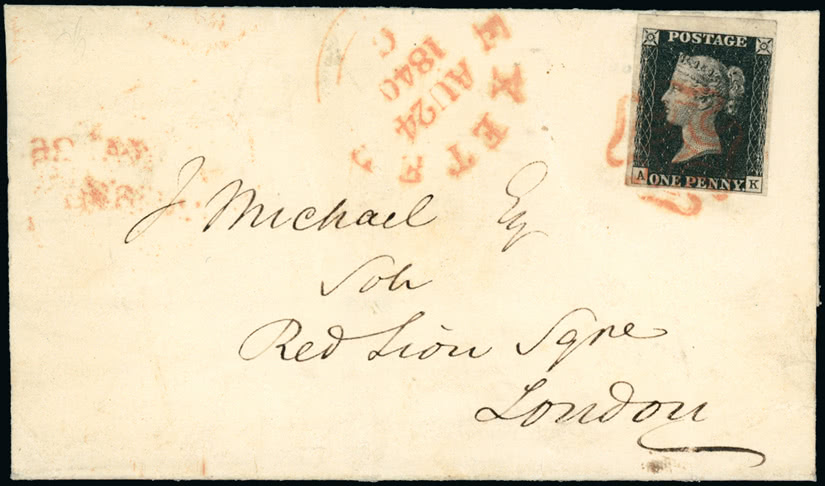 POSTAGE
A ONE PENNY K
EXETER
AU 24
1840
C
J Michael Esq
Solr
Red Lion Sqre
London